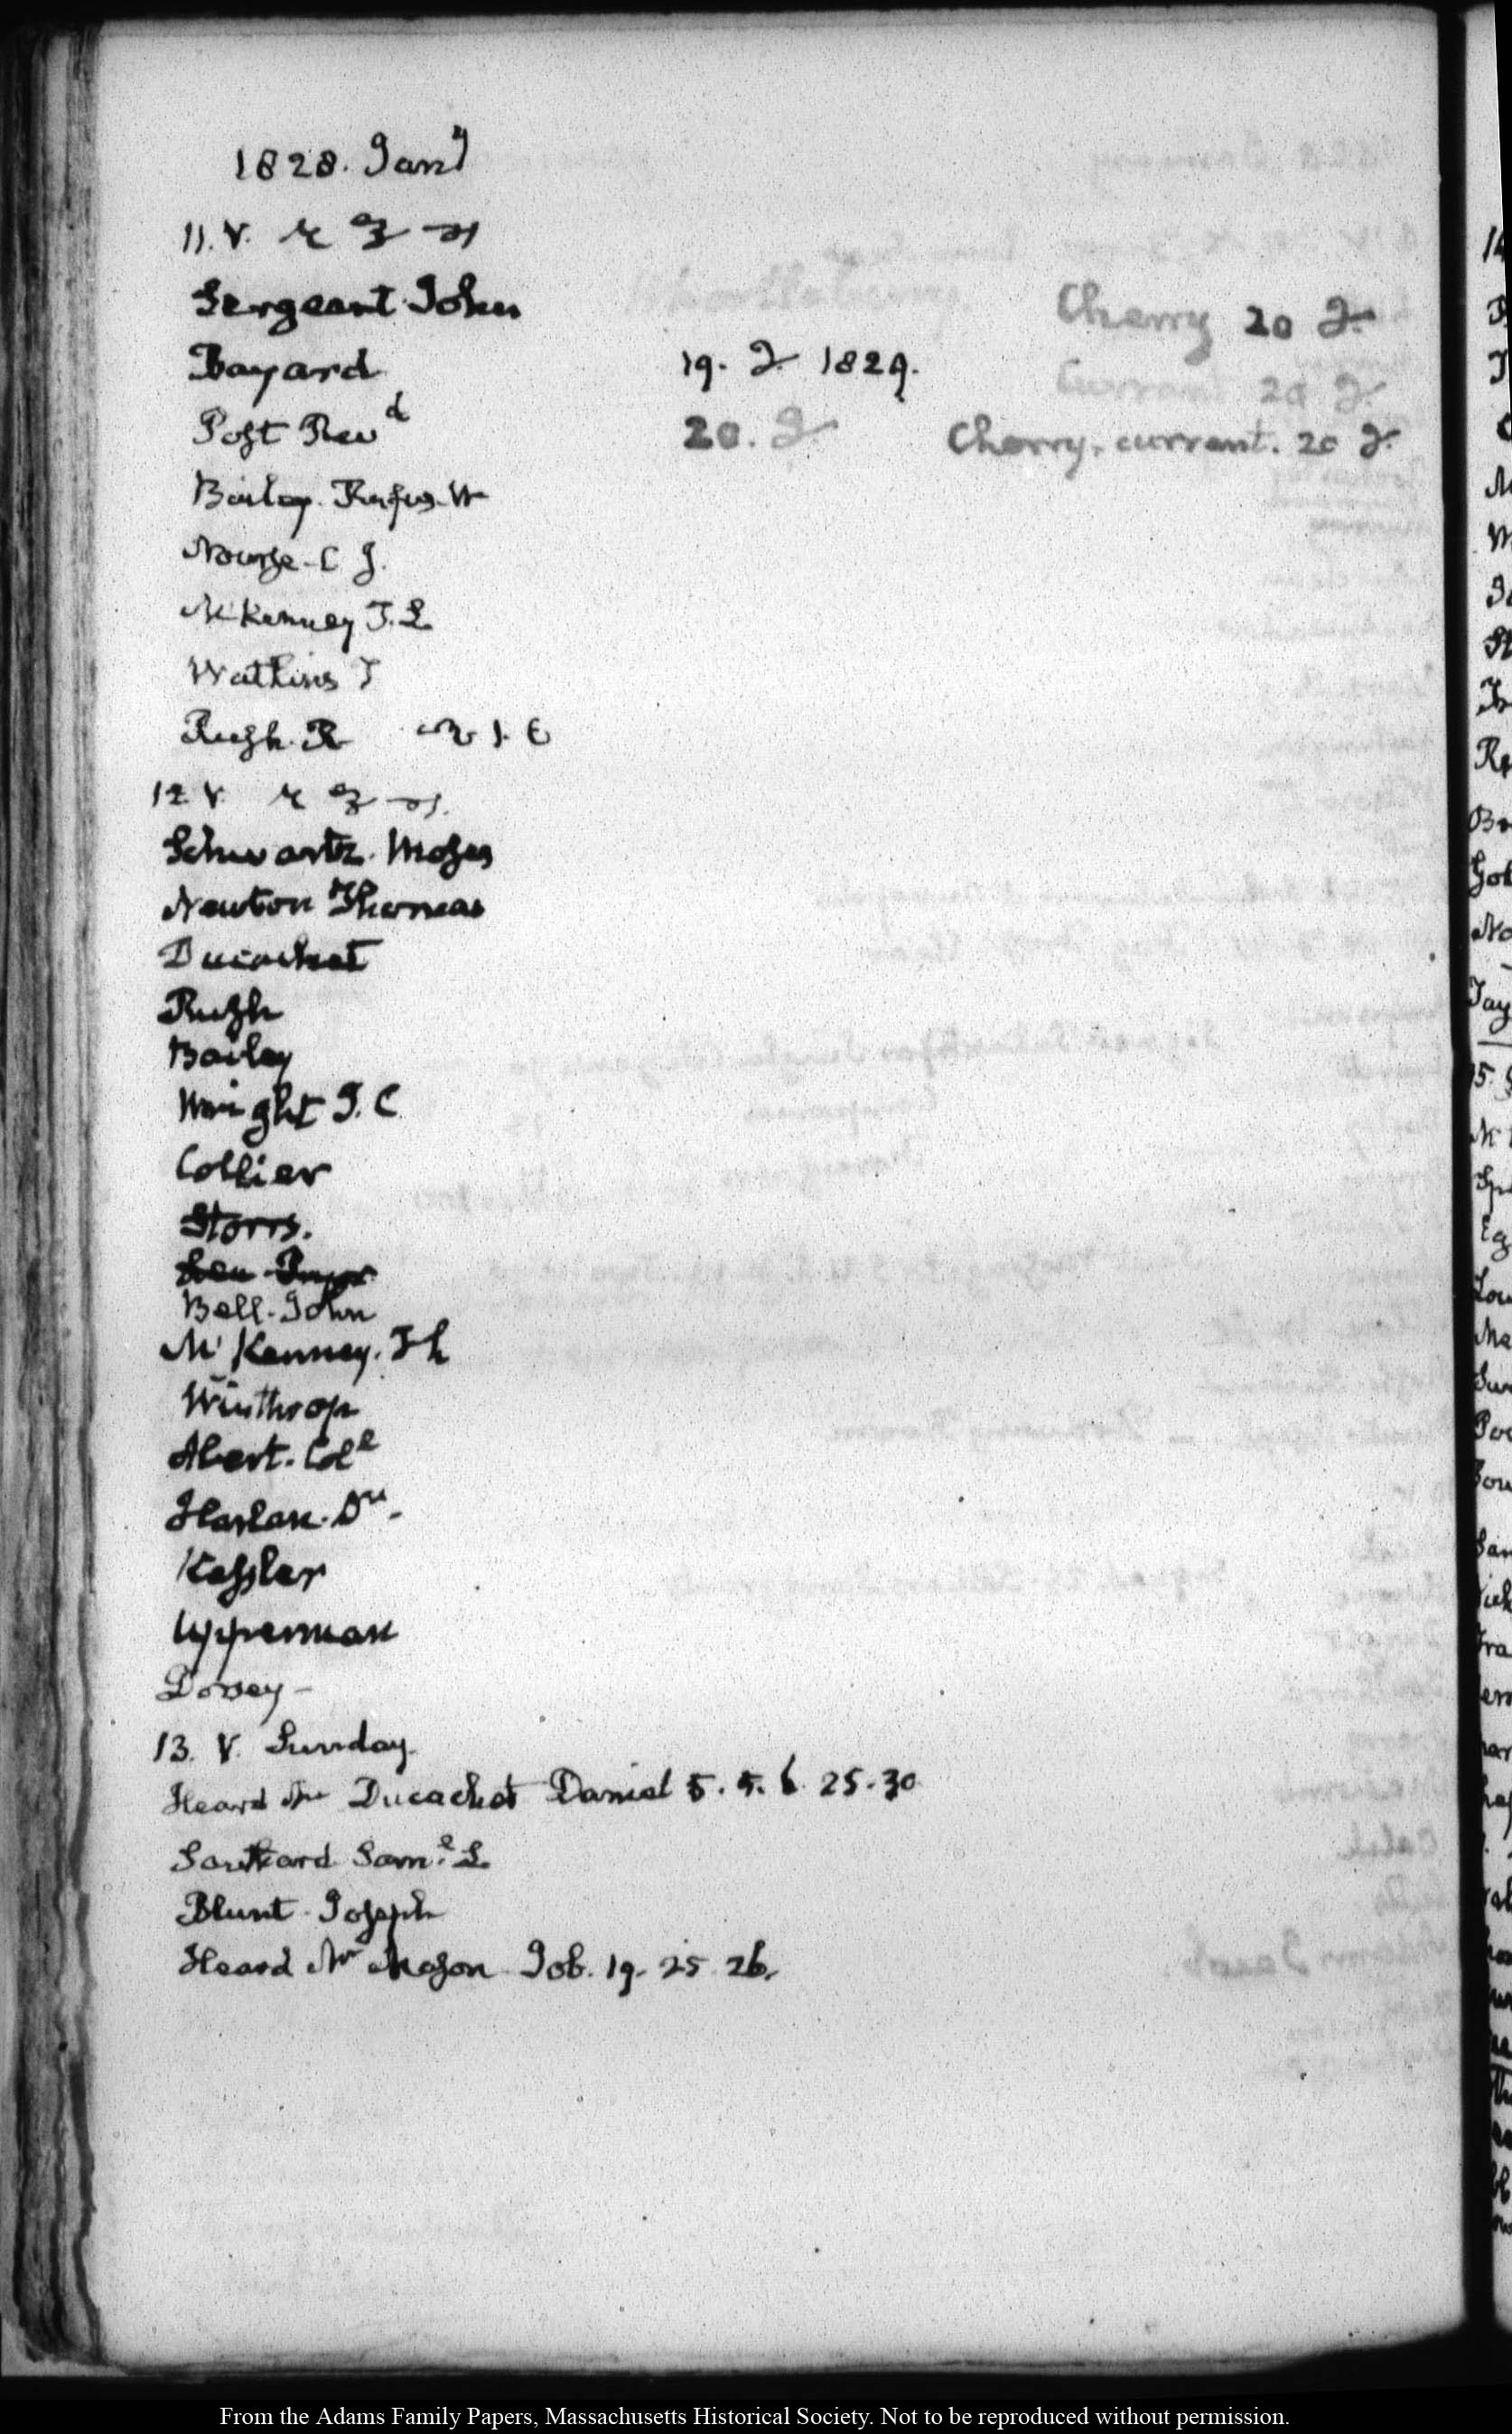 1828. Jany
11. V.
Sergeant John
Cherry 20 J.
Bayard 19. J 1829.
Currant 20 J.
Post Revd 20. J Cherry, currant. 20 J.
Bailey. Rufus. W
Nourse. C J.
McKenney T. L
Watkins T
Rush. R
12 V.
Schwartz. Moses
Newton Thomas
Ducachet
Rush
Bailey
Wright J. C
Collier
Storrs.
Bell. John
McKenney. Th
Winthrop
Abert. Coll
Harlan. Dr.
Kessler
Upperman
Dorsey—
13. V. Sunday.
Heard Mr Ducachet Daniel 5. 5. 6. 25-30
Southard Saml. L.
Blunt. Joseph
Heard Mr Mason Job. 19. 25 26.
From the Adams Family Papers, Massachusetts Historical Society. Not to be reproduced without permission.